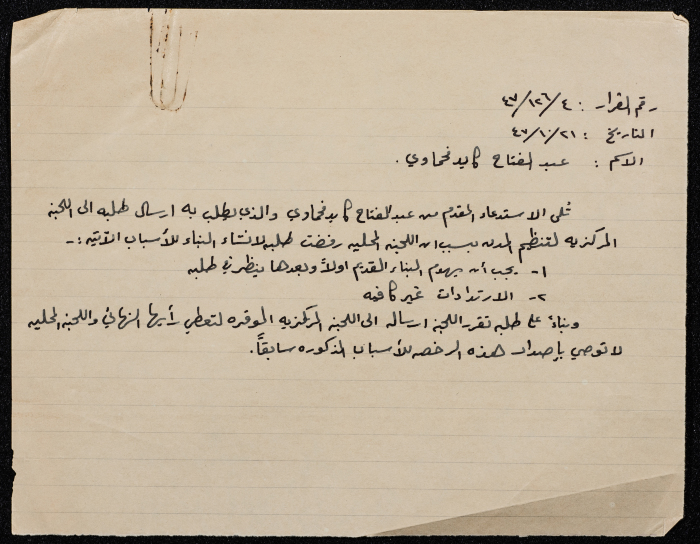 رقم القرار : ٤/١٢٦/٤٧
التاريخ : ٢١/١٠/٤٧
الاسم : عبد الفتاح كايد فحماوي .
تُلي الاستدعاء المقدم من عبد الفتاح كايد فحماوي والذي يطلب به ارسال طلبه الى اللجنة
المركزيه لتنظيم المدن بسبب ان اللجنه المحليه رفضت طلبه لانشاء البناء للأسباب الآتيه :-
١- يجب أن يهدم البناء القديم اولاً وبعدها ينظر في طلبه
٢- الارتدادات غير كافيه
وبناءً على طلبه تقرر اللجنة ارساله الى اللجنة المركزيه الموقره لتعطي رأيها النهائي واللجنه المحليه
لا توصي بإصدار هذه الرخصه للأسباب المذكوره سابقاً.